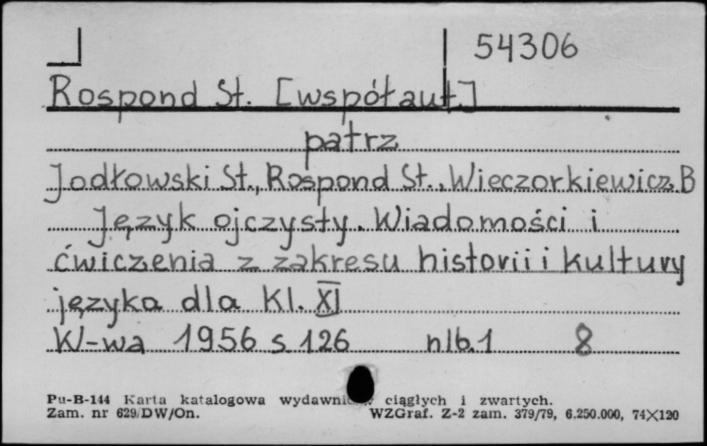 54306
Rospond St. [współaut.]
patrz
Jodłowski St., Rospond St., Wieczorkiewicz B
Język ojczysty. Wiadomości i
ćwiczenia z zakresu historii i kultury
języka dla kl. XI
W-wa 1956 s. 126 nlb. 1 8
Pu-B-144 Karta katalogowa ciągłych i zwartych.
Zam. nr 629/DW/On. WZGraf. Z-2 zam. 379/79, 6.250.000, 74×120